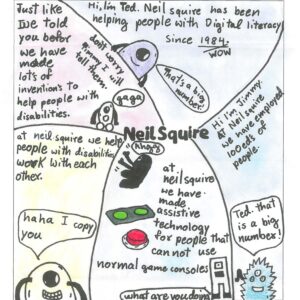 Just like
Ive told
you befor
we have
made
lots of
inventions To
help people with
disabilities.
Hi, I'm Ted. Neil Squire has been
helping people with Digital literacy
Since 1984.
WOW
don't worry
Jimmy ill
tell them.
That's a big
number!
gaga
Hi I'm Jimmy.
At Neil Squire
we have employed
100eds of
people.
Neil Squire
at neil squire we help
people with disabilities
work with each
other.
at
neil squire
we have
made
assistive
technology
for people that
can not use
normal game consoles
haha I copy
you
Ted. that
is a big
number!
what are you